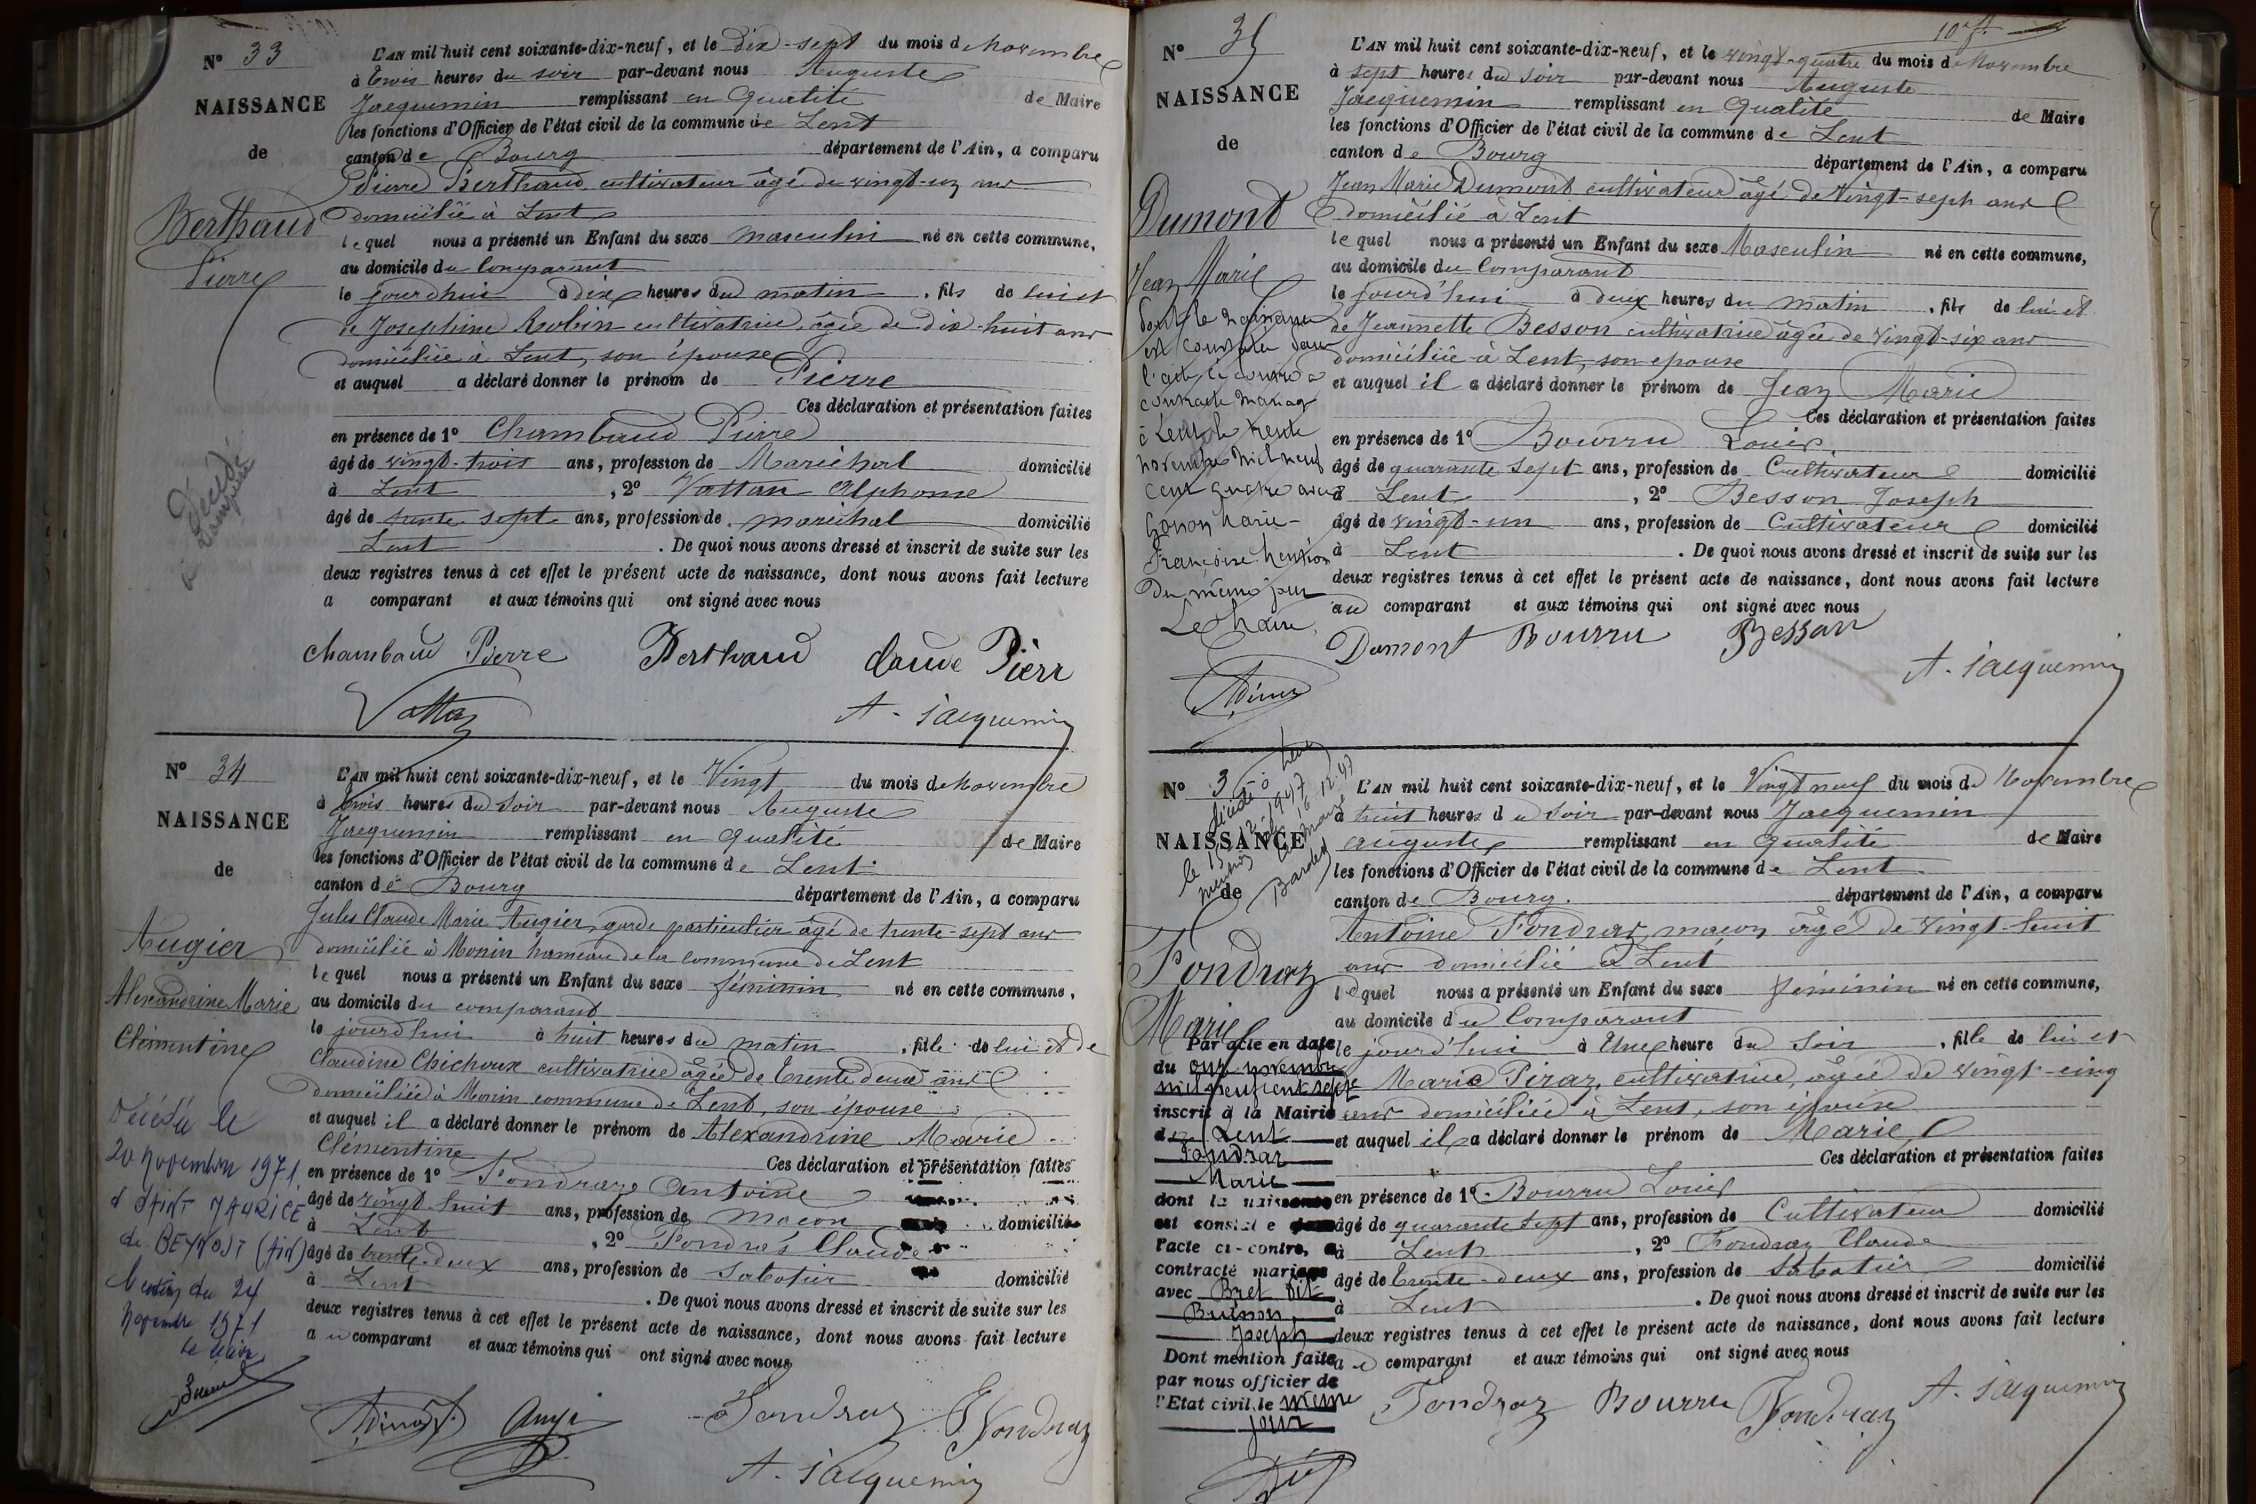 N° 33
NAISSANCE
de
Berthaud
Pierre
L'AN mil huit cent soixante-dix-neuf, et le Dix-sept du mois de Novembre
à trois heures du soir par-devant nous Auguste
Jacquemin remplissant en qualité de Maire
les fonctions d'Officier de l'état civil de la commune de Lent
canton de Bourg département de l'Ain, a comparu
Pierre Berthaud, cultivateur âgé de vingt-un ans
domicilié à Lent
lequel nous a présenté un Enfant du sexe masculin né en cette commune,
au domicile du comparant
le jourd'hui à dix heures du matin, fils de lui et
de Josephine Robin cultivatrice, âgée de dix-huit ans
domiciliée à Lent, son épouse
et auquel a déclaré donner le prénom de Pierre
Ces déclaration et présentation faites
en présence de 1° Chambaud Pierre
âgé de vingt-trois ans, profession de Maréchal domicilié
à Lent, 2° Vattan Alphonse
âgé de trente sept ans, profession de maréchal domicilié
Lent. De quoi nous avons dressé et inscrit de suite sur les
deux registres tenus à cet effet le présent acte de naissance, dont nous avons fait lecture
a comparant et aux témoins qui ont signé avec nous
Chambaud Pierre Berthaud Claude Pierr
Vattan A. Jacquemin
N° 34
NAISSANCE
de
Augier
Alexandrine Marie
Clémentine
Décédée le
20 novembre 1971
à SAINT MAURICE
de BEYNOST (AIN)
Mention du 24
novembre 1971
Le Maire
L'AN mil huit cent soixante-dix-neuf, et le Vingt du mois de Novembre
à trois heures du soir par-devant nous Auguste
Jacquemin remplissant en qualité de Maire
les fonctions d'Officier de l'état civil de la commune de Lent
canton de Bourg département de l'Ain, a comparu
Jules Claude Marie Augier, garde particulier âgé de trente-sept ans
domicilié à Monin hameau de la commune de Lent
lequel nous a présenté un Enfant du sexe féminin né en cette commune,
au domicile du comparant
le jourd'hui à huit heures du matin, fille de lui et de
Claudine Chicheux cultivatrice âgée de trente deux ans
domiciliée à Monin commune de Lent, son épouse
et auquel il a déclaré donner le prénom de Alexandrine Marie
Clémentine Ces déclaration et présentation faites
en présence de 1° Fondraz Antoine
âgé de vingt huit ans, profession de maçon domicilié
à Lent, 2° Fondras Claude
âgé de trente-deux ans, profession de sabotier domicilié
à Lent. De quoi nous avons dressé et inscrit de suite sur les
deux registres tenus à cet effet le présent acte de naissance, dont nous avons fait lecture
au comparant et aux témoins qui ont signé avec nous
Augier Fondraz Fondraz
A. Jacquemin
N° 35
NAISSANCE
de
Dumont
Jean Marie
dont la naissance
est constatée dans
l'acte ci contre a
contracté mariage
à Lent le trente
novembre mil neuf
cent quatre avec
Gonon Marie-
Françoise. Mention
du même jour
Le Maire
L'AN mil huit cent soixante-dix-neuf, et le vingt-quatre du mois de Novembre
à sept heures du soir par-devant nous Auguste
Jacquemin remplissant en qualité de Maire
les fonctions d'Officier de l'état civil de la commune de Lent
canton de Bourg département de l'Ain, a comparu
Jean Marie Dumont cultivateur âgé de Vingt-sept ans
domicilié à Lent
lequel nous a présenté un Enfant du sexe Masculin né en cette commune,
au domicile du Comparant
le jourd'hui à deux heures du matin, fils de lui et
de Jeannette Besson cultivatrice âgée de vingt-six ans
domiciliée à Lent, son épouse
et auquel il a déclaré donner le prénom de Jean Marie
Ces déclaration et présentation faites
en présence de 1° Bourru Louis
âgé de quarante sept ans, profession de Cultivateur domicilié
à Lent, 2° Besson Joseph
âgé de vingt-un ans, profession de Cultivateur domicilié
à Lent. De quoi nous avons dressé et inscrit de suite sur les
deux registres tenus à cet effet le présent acte de naissance, dont nous avons fait lecture
au comparant et aux témoins qui ont signé avec nous
Dumont Bourru Besson
A. Jacquemin
N° 3
NAISSANCE
de
Fondraz
Marie
Par acte en date
du onze novembre
mil neuf cent sept
inscrit à la Mairie
de Lent
Fondraz
Marie
dont la naissance
est constatée dans
l'acte ci-contre, a
contracté mariage
avec Bret dit
Buisson
Joseph
Dont mention faite
par nous officier de
l'Etat civil, le même
jour
L'AN mil huit cent soixante-dix-neuf, et le Vingt neuf du mois de Novembre
à huit heures du soir par-devant nous Jacquemin
Auguste remplissant en qualité de Maire
les fonctions d'Officier de l'état civil de la commune de Lent
canton de Bourg. département de l'Ain, a comparu
Antoine Fondraz, maçon âgé de vingt-huit
ans domicilié à Lent
lequel nous a présenté un Enfant du sexe féminin né en cette commune,
au domicile du Comparant
le jourd'hui à Une heure du soir, fille de lui et
Marie Piraz, cultivatrice, âgée de vingt-cinq
ans domiciliée à Lent, son épouse
et auquel il a déclaré donner le prénom de Marie
Ces déclaration et présentation faites
en présence de 1° Bourru Louis
âgé de quarante sept ans, profession de Cultivateur domicilié
à Lent, 2° Fondraz Claude
âgé de trente-deux ans, profession de sabotier domicilié
à Lent. De quoi nous avons dressé et inscrit de suite sur les
deux registres tenus à cet effet le présent acte de naissance, dont nous avons fait lecture
au comparant et aux témoins qui ont signé avec nous
Fondraz Bourru Fondraz A. Jacquemin